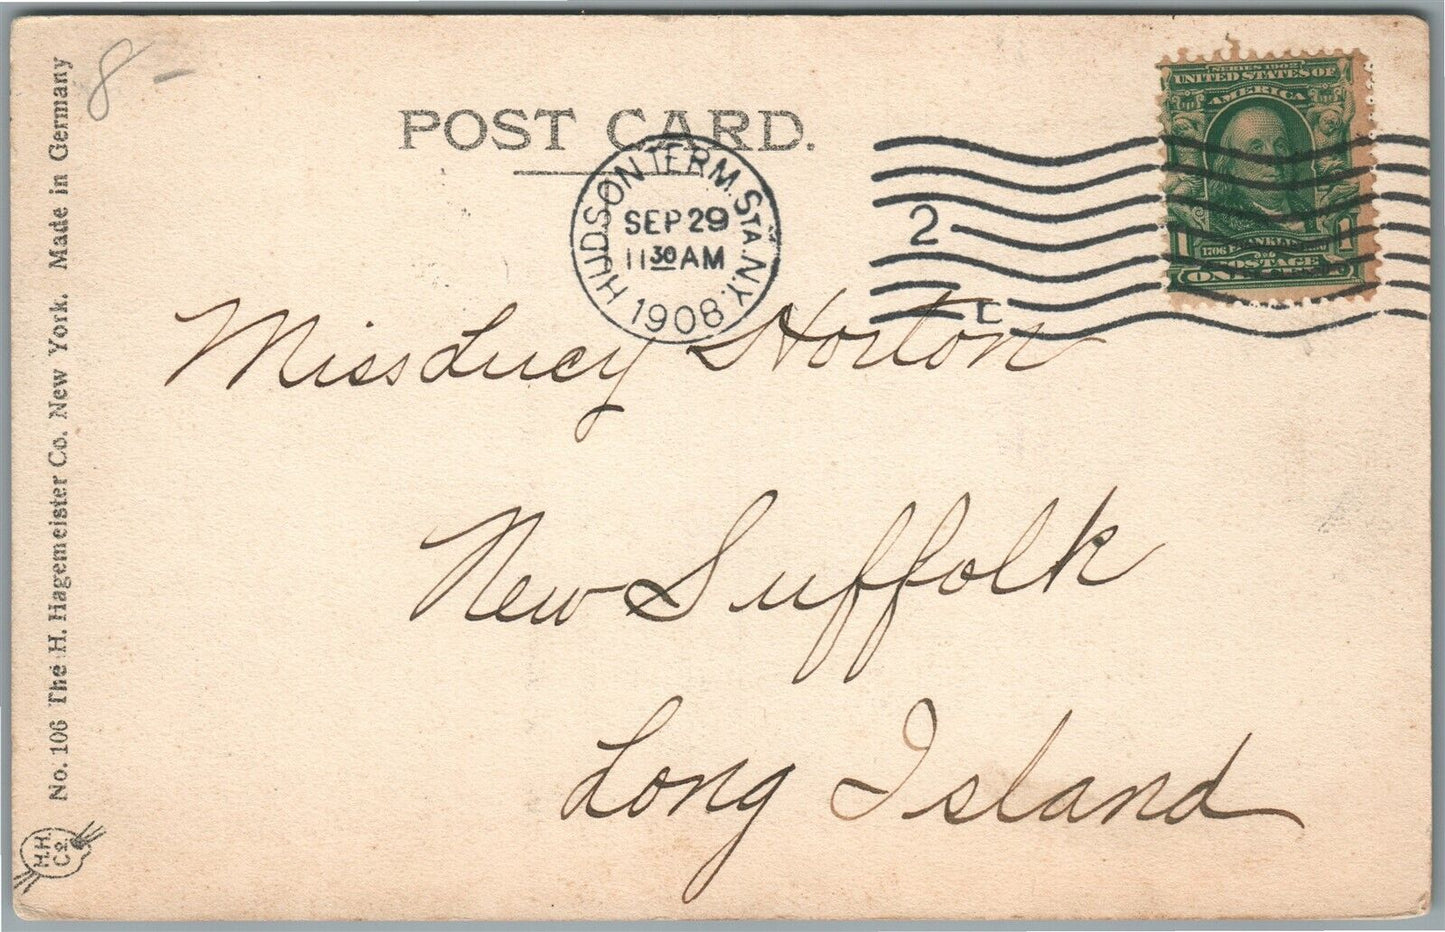 8 -
No. 106 The H. Hagemeister Co. New York. Made in Germany
H.H.
Co.
POST CARD.
HUDSON TERM. STA. N.Y.
SEP 29
11 30 AM
1908
2
SERIES 1902
UNITED STATES OF
AMERICA
1 1
1706 FRANKLIN 1790
POSTAGE
ONE
Miss Lucy Horton
New Suffolk
Long Island